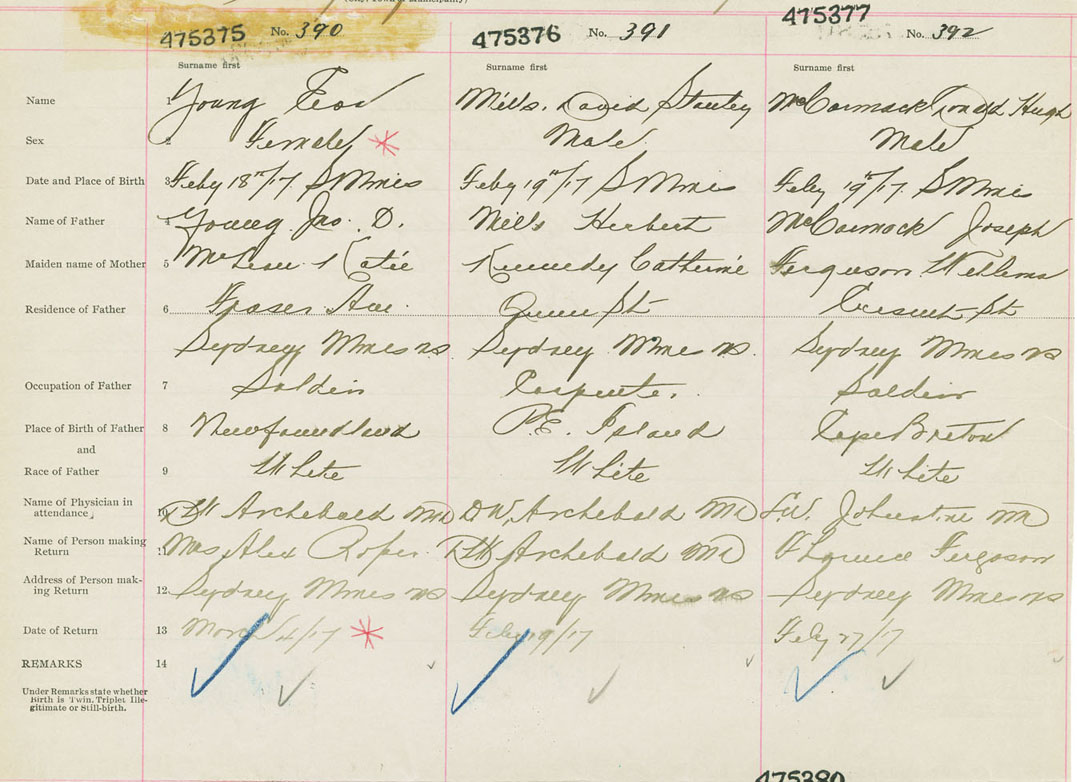 475375 No. 390 475376 No. 391 475377 No. 392
Surname first Surname first Surname first
Name 1 Young Mills, David Stanley McCormack Donald Hugh
Sex 2 Female Male Male
Date and Place of Birth 3 Feby 18th/17. S Mines Feby 19th/17 S Mines Feby 19th/17. S Mines
Name of Father 4 Young Jno. D. Mills Herbert McCormack Joseph
Maiden name of Mother 5 McLean Katie Kennedy Catherine Ferguson Willena
Residence of Father 6 Fraser Ave. Queen St Crescent St
Sydney Mines NS Sydney Mines NS Sydney Mines NS
Occupation of Father 7 Soldier Carpenter. Soldier
Place of Birth of Father 8 Newfoundland P.E. Island Cape Breton
and
Race of Father 9 White White White
Name of Physician in
attendance, 10 DW Archibald MD DW, Archibald MD L.W. Johnstone MD
Name of Person making
Return 11 Mrs Alex Roper DW Archibald MD Florence Ferguson
Address of Person mak-
ing Return 12 Sydney Mines NS Sydney Mines NS Sydney Mines NS
Date of Return 13 March 4/17 Feby 19/17 Feby 27/17
REMARKS 14
Under Remarks state whether
Birth is Twin, Triplet Ille-
gitimate or Still-birth.
475380